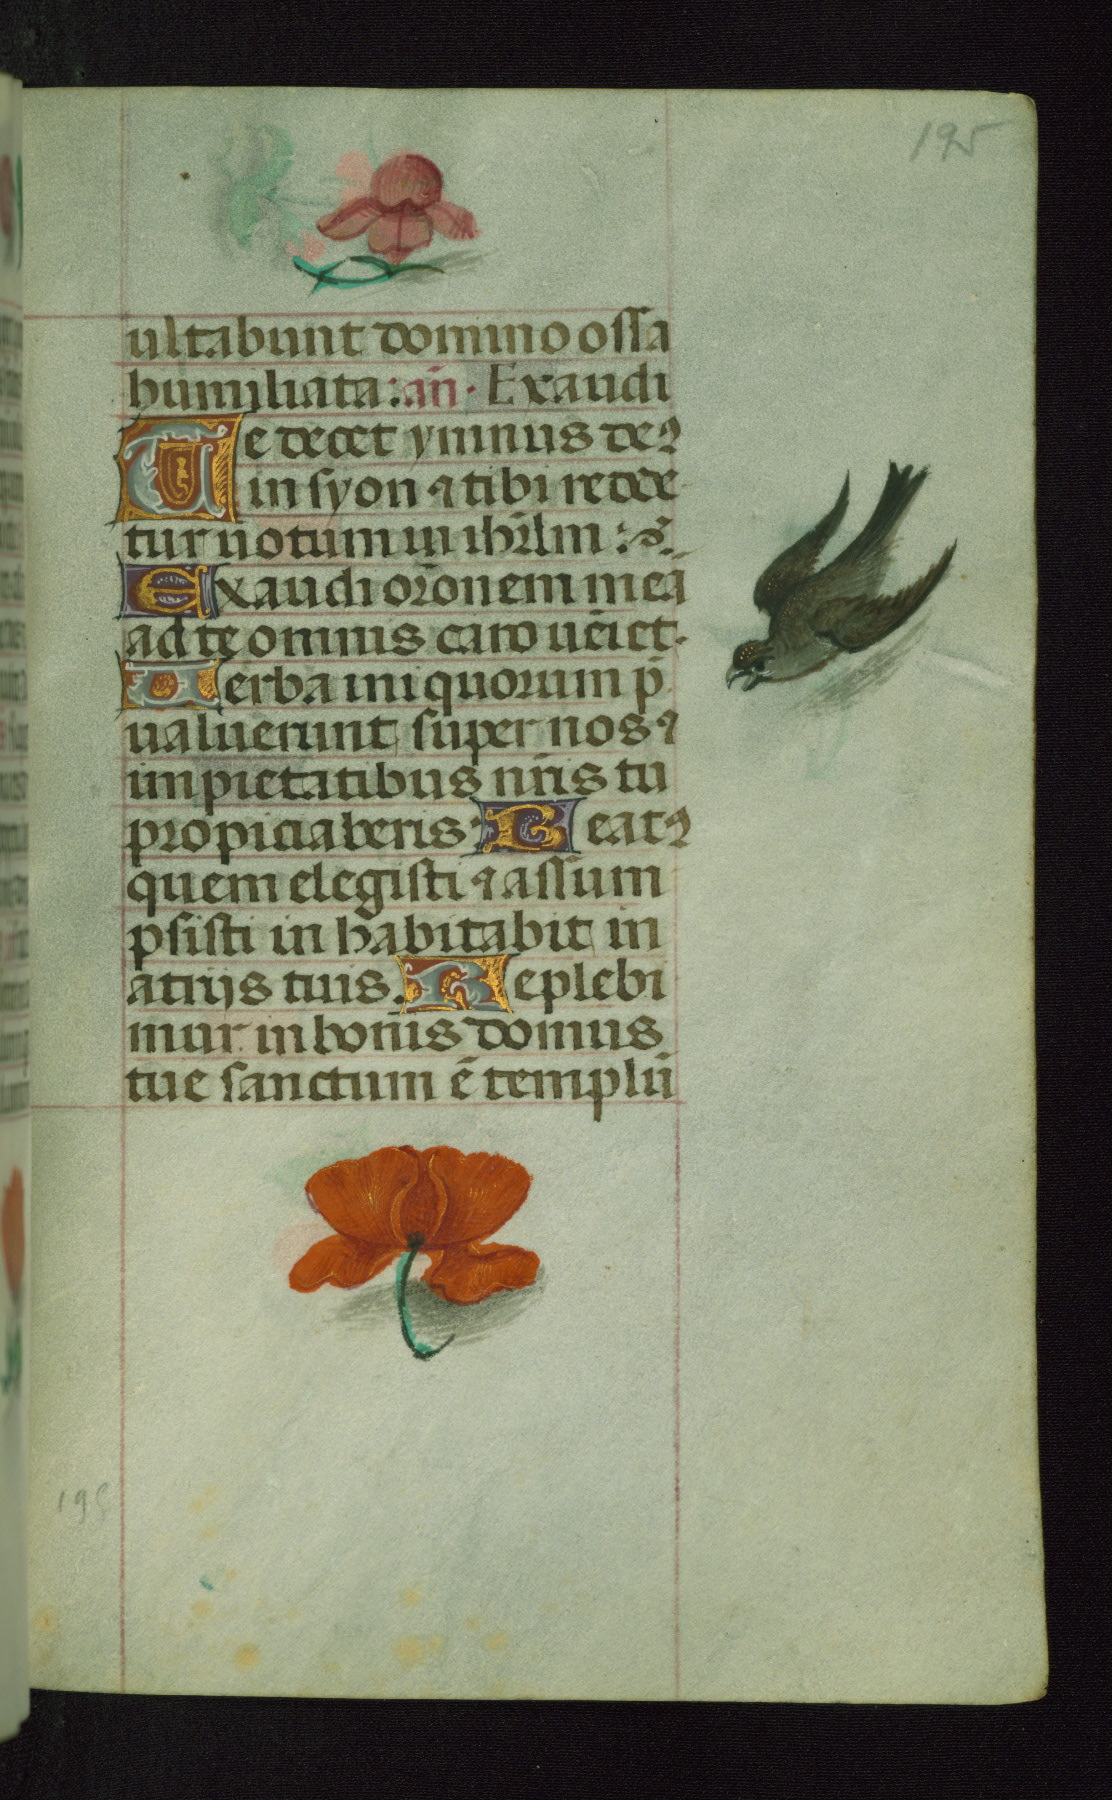 195
ultabunt domino ossa
humiliata : an̄ · Exaudi
Te decet ymnus deꝰ
in syon ⁊ tibi redde
tur uotum in ihrl̄m :
Exaudi orōnem meā
ad te omnis caro uēiet.
Uerba iniquorum p̄
ualuerunt super nos ⁊
impietatibus nr̄is tu
propiciaberis Beatꝰ
quem elegisti ⁊ assum
psisti in habitabit in
atrijs tuis. Replebi
mur in bonis domus
tue sanctum ē templū